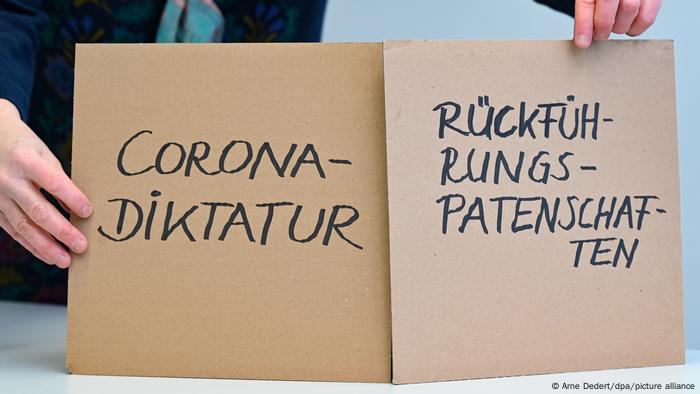 CORONA-
DIKTATUR
RÜCKFÜH-
RUNGS-
PATENSCHAF-
TEN
© Arne Dedert/dpa/picture alliance